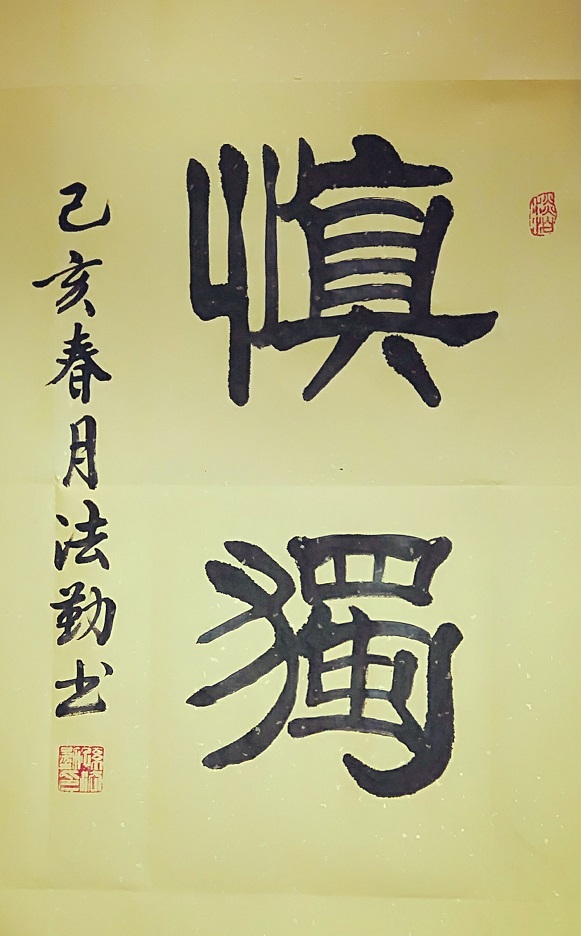 慎獨
己亥春月法勤书